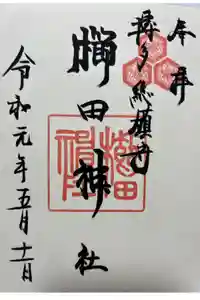 奉拝
博多総鎮守
櫛田神社
令和元年五月十一日
櫛田神社